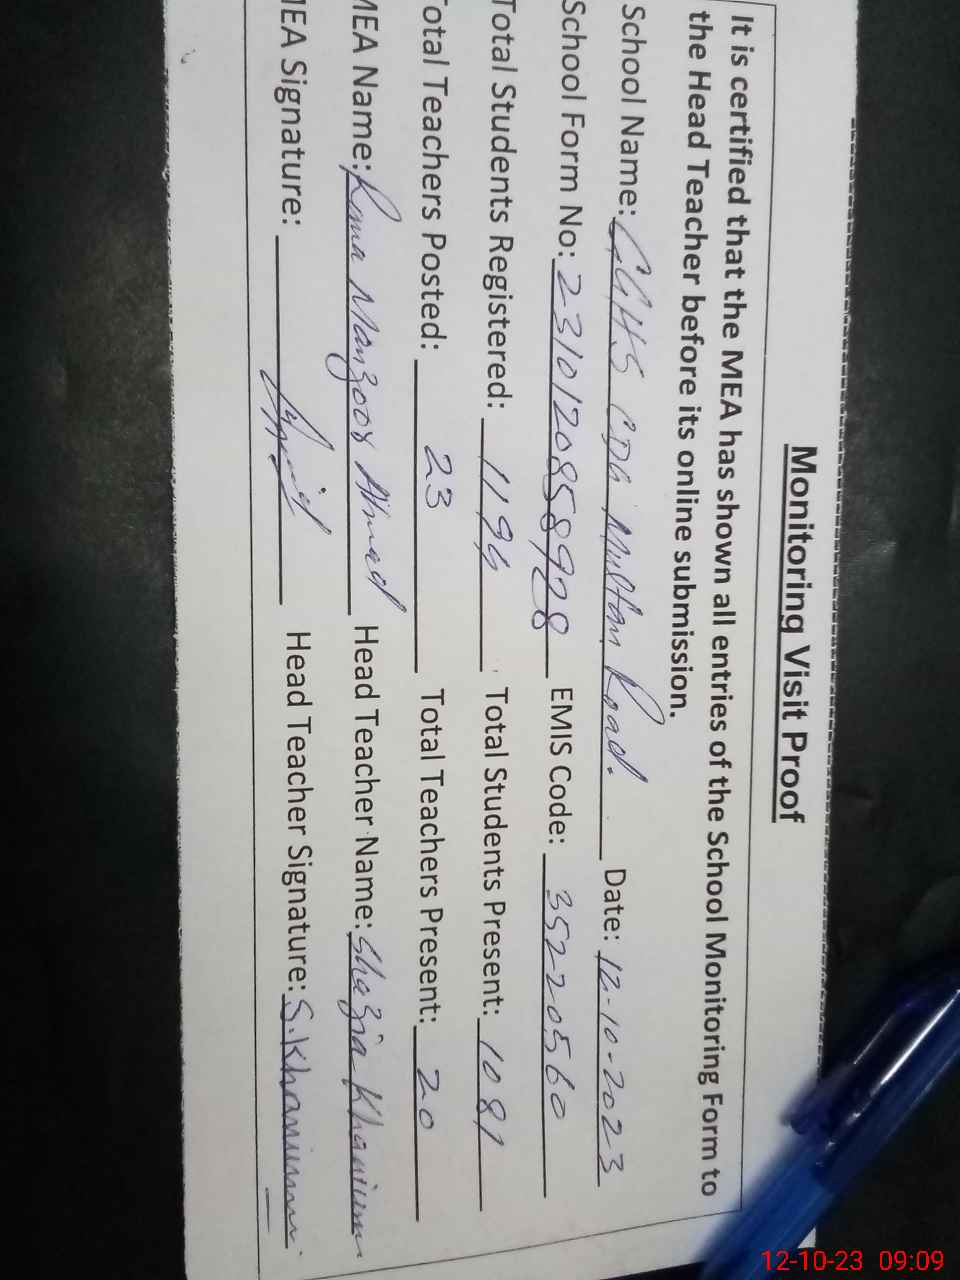 Monitoring Visit Proof
It is certified that the MEA has shown all entries of the School Monitoring Form to
the Head Teacher before its online submission.
School Name: GGHS CDG Multan Road. Date: 12-10-2023
School Form No: 2310120858928 EMIS Code: 35220560
Total Students Registered: 1194 Total Students Present: 1081
Total Teachers Posted: 23 Total Teachers Present: 20
MEA Name: Rana Manzoor Ahmad Head Teacher Name: Shazia Khanum
MEA Signature: Head Teacher Signature: S.Khanum
12-10-23 09:09